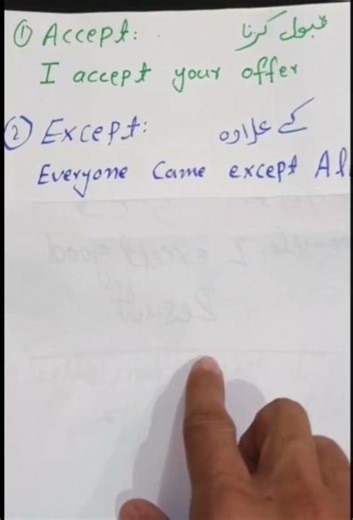 ① Accept: قبول کرنا
I accept your offer
② Except: کے علاوہ
Everyone Came except